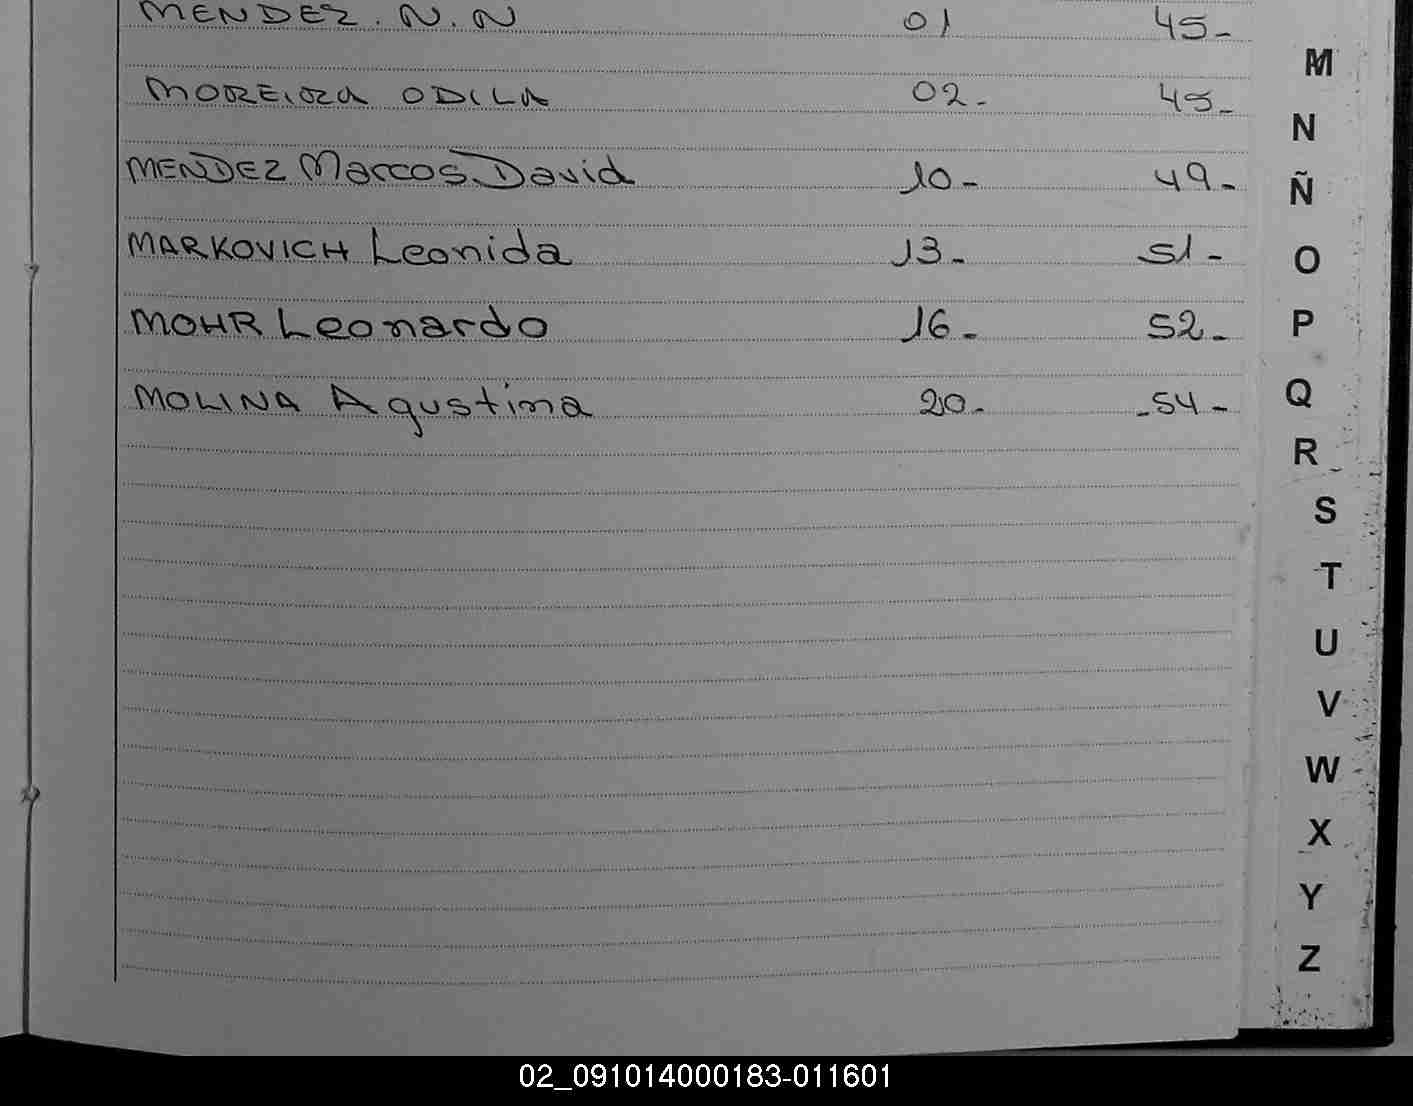 MENDEZ. N. N 01 45-
MOREIRA ODILA 02- 45-
MENDEZ Marcos David 10- 49-
MARKOVICH Leonida 13- 51-
MOHR Leonardo 16- 52-
MOLINA Agustina 20- -54-
M
N
Ñ
O
P
Q
R
S
T
U
V
W
X
Y
Z
02_091014000183-011601